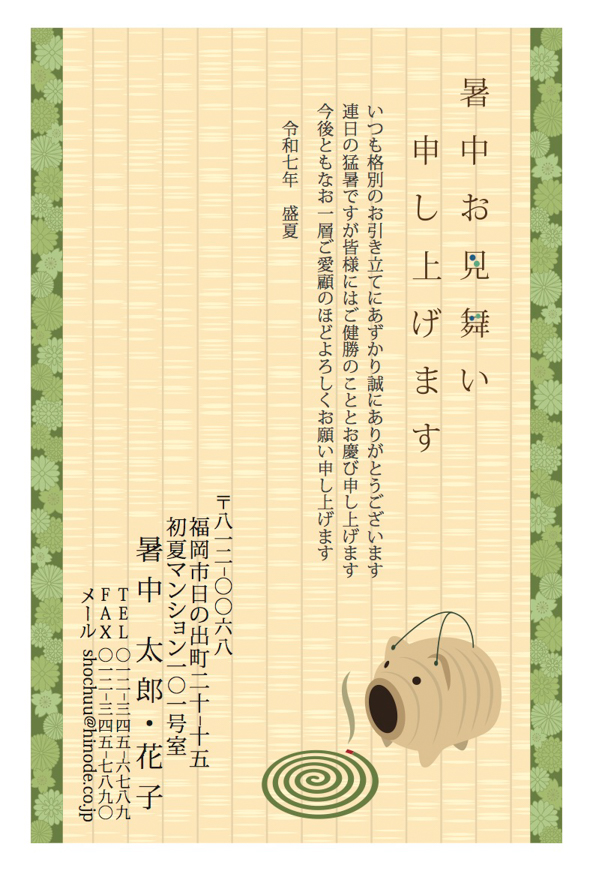 暑中お見舞い
申し上げます
いつも格別のお引き立てにあずかり誠にありがとうございます
連日の猛暑ですが皆様にはご健勝のこととお慶び申し上げます
今後ともなお一層ご愛顧のほどよろしくお願い申し上げます
令和七年　盛夏
〒八一二-〇〇六八
福岡市日の出町二十-十五
初夏マンション一〇一号室
暑中　太郎・花子
TEL 〇一二-三四五-六七八九
FAX 〇一二-三四五-七八九〇
メール shochuu@hinode.co.jp